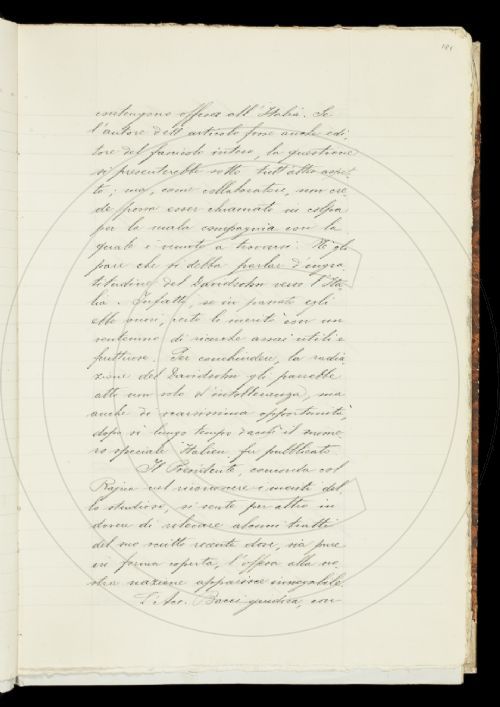 181
contengono offese all'Italia. Se
l'autore dell'articolo fosse anche edi-
tore del fascicolo intero, la questione
si presenterebbe sotto tutt'altro aspet-
to; ma, come collaboratore, non cre-
de possa esser chiamato in colpa
per la mala compagnia con la
quale è venuto a trovarsi. Nè gli
pare che si debba parlar d'ingra-
titudine del Davidsohn verso l'Ita-
lia. Infatti, se in passato egli
ebbe onori, certo li meritò con un
ventennio di ricerche assai utili e
fruttuose. Per conchiudere, la radia-
zione del Davidsohn gli parrebbe
atto non solo d'intolleranza, ma
anche di scarsissima opportunità
dopo sì lungo tempo dacchè il nume-
ro speciale Italien fu pubblicato.
Il Presidente, concorda col
Rajna nel riconoscere i meriti del-
lo studioso, si sente per altro in
dovere di rilevare alcuni tratti
del suo scritto recente dove, sia pure
in forma coperta, l'offesa alla no-
stra nazione apparisce innegabile.
L'Acc. Bacci giudica, con